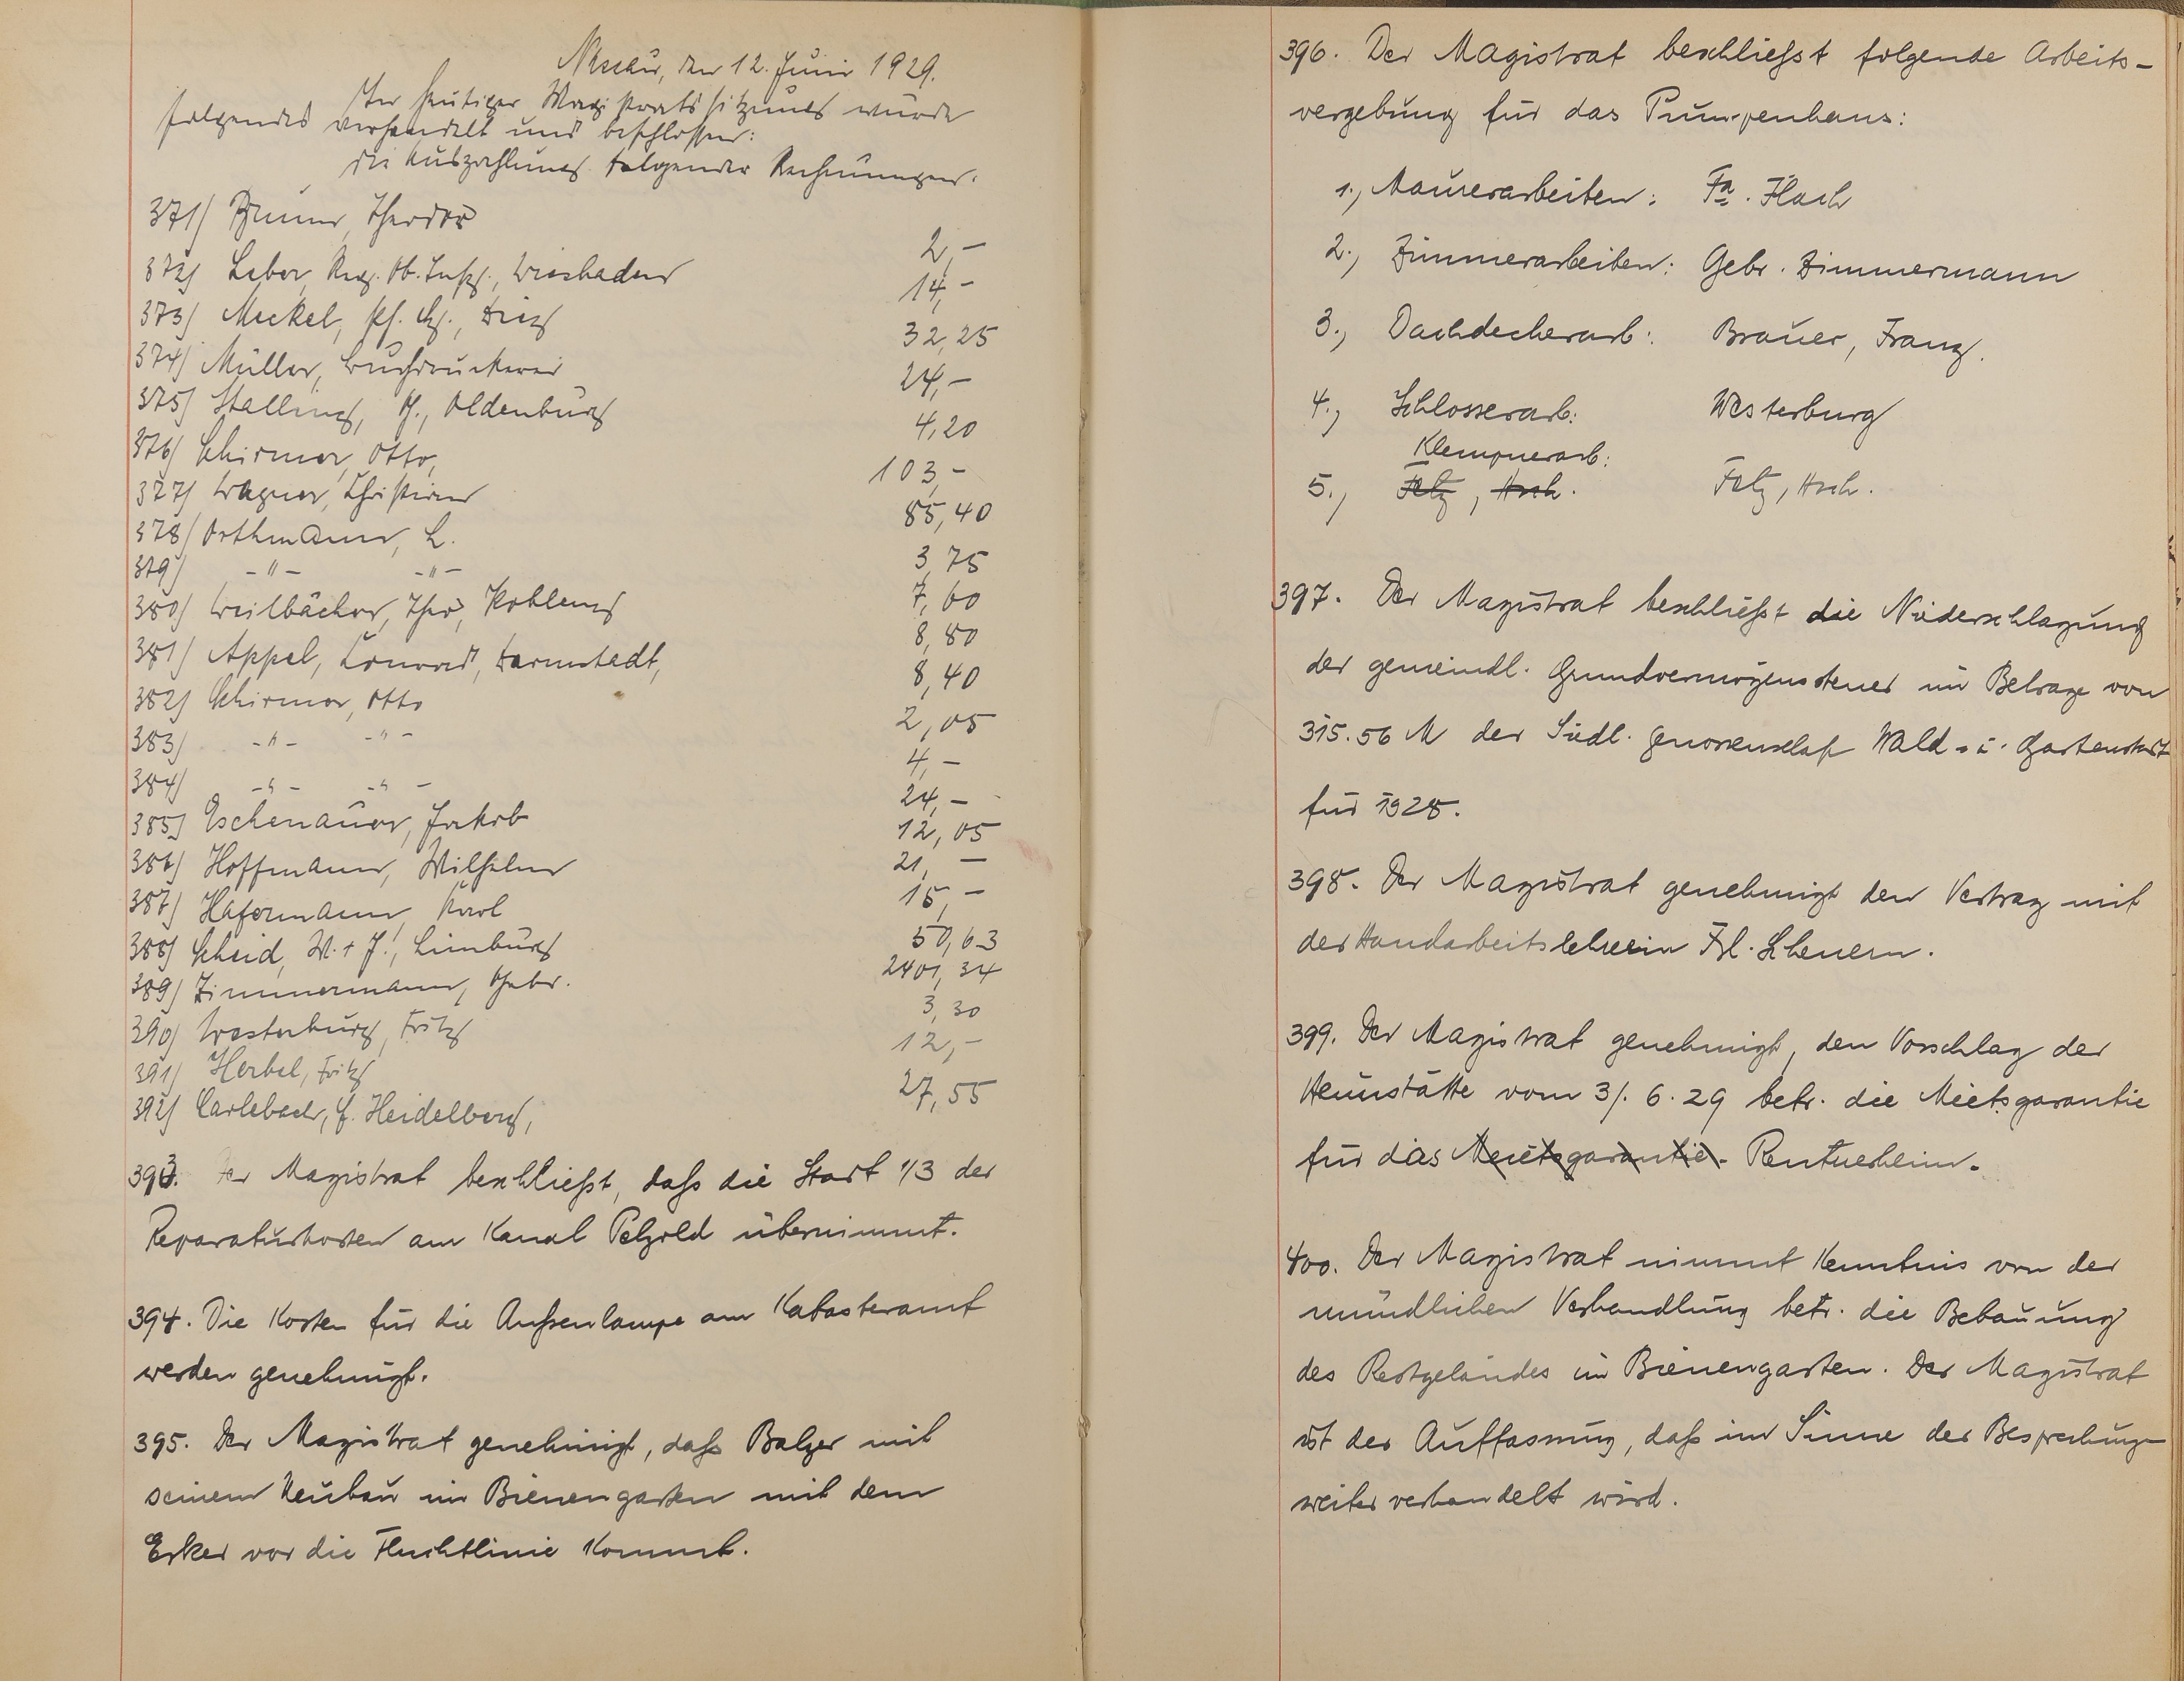 Nassau, den 12. Juni 1929.
In heutiger Magistratssitzung wurde
folgendes verhandelt und beschlossen:
die Auszahlung folgender Rechnungen.
371) Bruns, Theodor 2,-
372) Leber, Reg. Ob. Insp., Wiesbaden 14,-
373) Meckel, Diez 32,25
374) Müller, Buchdruckerei 24,-
375) Stalling, G., Oldenburg 4,20
376) Schirmer, Otto, 103,-
377) Wagner, Christian 85,40
378) Orthmann, L. 3,75
379) -"- -"- 7,60
380) Weilbächer, Theo, Koblenz 8,80
381) Appel, Konrad, Darmstadt, 8,40
382) Schirmer, Otto 2,05
383) -"- -"- 4,-
384) -"- -"- 24,-
385) Eschenauer, Jakob 12,05
386) Hoffmann, Wilhelm 21,-
387) Hafermann, Karl 15,-
388) Scheid, W. + J., Limburg 50,63
389) Zimmermann, Gebr. 2401,34
390) Westerburg, Fritz 3,30
391) Herbel, Fritz 12,-
392) Carlebach, Heidelberg, 27,55
393. Der Magistrat beschließt, daß die Stadt 1/3 der
Reparaturkosten am Kanal Petzold übernimmt.
394. Die Kosten für die Außenlampe am Katasteramt
werden genehmigt.
395. Der Magistrat genehmigt, daß Balzer mit
seinem Neubau im Bienengarten mit dem
Erker vor die Fluchtlinie kommt.
396. Der Magistrat beschließt folgende Arbeits-
vergebung für das Pumpenhaus:
1., Maurerarbeiten: Fa. Flach
2., Zimmerarbeiten: Gebr. Zimmermann
3., Dachdeckerarb: Brauer, Franz.
4., Schlosserarb: Westerburg
Klempnerarb:
5., Fetz, Hrch. Fetz, Hrch.
397. Der Magistrat beschließt die Niederschlagung
der gemeindl. Grundvermögenssteuer im Betrage von
315.56 M der Siedl. Genossenschaft Wald- u. Gartenstadt
für 1928.
398. Der Magistrat genehmigt den Vertrag mit
der Handarbeitslehrerin Frl. Scheuern.
399. Der Magistrat genehmigt, den Vorschlag der
Heimstätte vom 3/. 6. 29 betr. die Mietsgarantie
für das Mietsgarantie. Rentnerheim.
400. Der Magistrat nimmt Kenntnis von der
mündlichen Verhandlung betr. die Bebauung
des Restgeländes im Bienengarten. Der Magistrat
ist der Auffassung, daß im Sinne der Besprechung
weiter verhandelt wird.